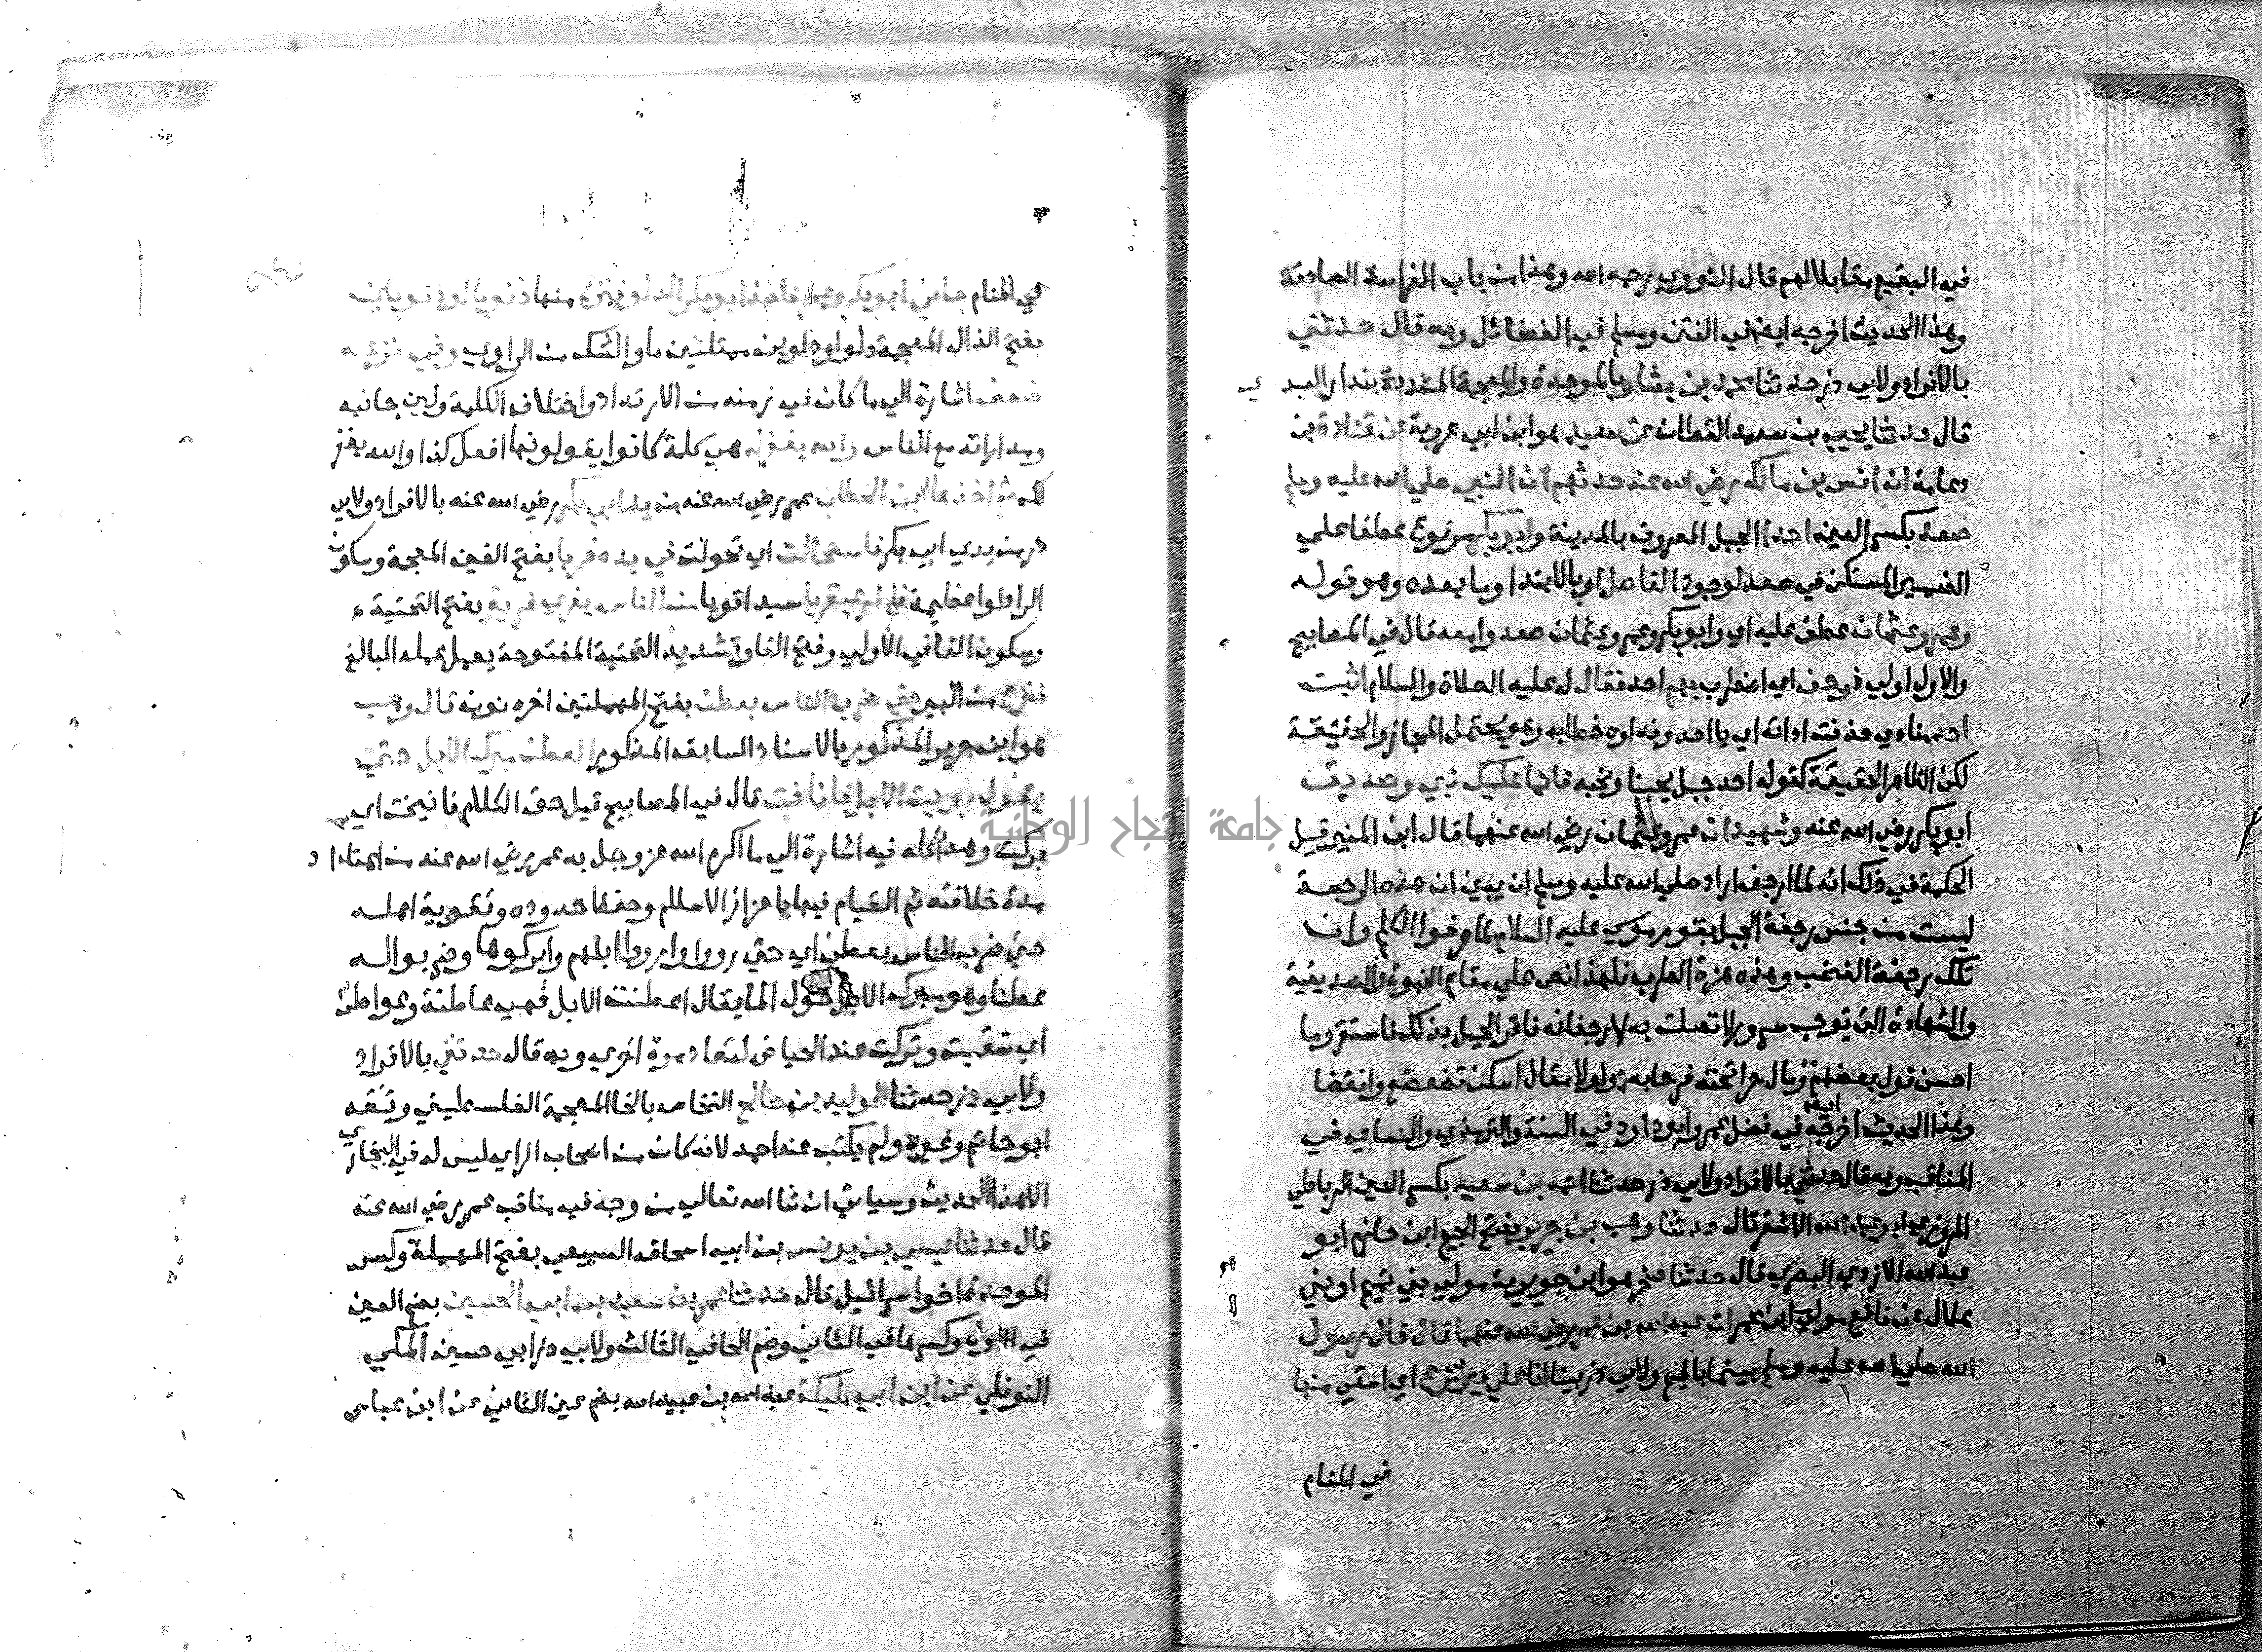 في البقيع مقابلا لهم قال النووي رحمه الله وهذا من باب الفراسة الصادقة
وهذا الحديث اخرجه ايضا في الفتن ومسلم في الفضائل وبه قال حدثني
بالافراد ولابي ذر حدثنا محمد بن بشار بالموحدة والمعجمة المشددة بندار العبدي
قال حدثنا يحيي بن سعيد القطان عن سعيد هو ابن ابي عروبة عن قتادة بن
دعامة ان انس بن مالك رضي الله عنه حدثهم ان النبي صلي الله عليه وسلم
صعد بكسر العين احدا الجبل المعروف بالمدينة وابو بكر مرفوع عطفا علي
الضمير المستكن في صعد لوجود الفاصل او بالابتدا وما بعده وهو قوله
وعمر وعثمان عطف عليه اي وابو بكر وعمر وعثمان صعدوا معه قال في المصابيح
والاول اولي فرجف اي اضطرب بهم احد فقال له عليه الصلاة والسلام اثبت
احد منادي حذفت اداته اي يا احد ونداوه خطابه وهو يحتمل المجاز والحقيقة
لكن الظاهر الحقيقة كقوله احد جبل يحبنا ونحبه فانما عليك نبي وصديق
ابو بكر رضي الله عنه وشهيدان عمر وعثمان رضي الله عنهما قال ابن المنير قيل
الحكمة في ذلك انه لما ارجف اراد صلي الله عليه وسلم ان يبين ان هذه الرجفة
ليست من جنس رجفة الجبل بقوم موسي عليه السلام لما حرفوا الكلم وان
تلك رجفة الغضب وهذه هزة الطرب فلهذا نص علي مقام النبوة والصديقية
والشهادة التي توجب سرور ما اتصلت به لا رجفانه فاقر الجبل بذلك فاستقر وما
احسن قول بعضهم ومال حرا تحته فرحا به فلولا مقال اسكن تضعضع وانقضا
وهذا الحديث اخرجه ايضا في فضل عمر وابو داود في السنة والترمذي والنساي في
المناقب وبه قال حدثني بالافراد ولابي ذر حدثنا احمد بن سعيد بكسر العين الرباطي
المروزي ابو عبد الله الاشقر قال حدثنا وهب بن جرير بفتح الجيم ابن حازم ابو
عبد الله الازدي البصري قال حدثنا صخر هو ابن جويرية مولي بني تميم او بني
هلال عن نافع مولي ابن عمر ان عبد الله بن عمر رضي الله عنهما قال قال رسول
الله صلي الله عليه وسلم بينما بالميم ولابي ذر بينا انا علي بير انزع اي استقي منها
في المنام
في المنام جاني ابو بكر وعمر فاخذ ابو بكر الدلو فنزع منها ذنوبا او ذنوبين
بفتح الذال المعجمة دلوا او دلوين ممتلئين ماء والشك من الراوي وفي نزعه
ضعف اشارة الي ما كان في زمنه من الارتداد واختلاف الكلمة ولين جانبه
ومداراته مع الناس والله يغفر له هي كلمة كانوا يقولونها افعل كذا والله يغفر
لك ثم اخذها ابن الخطاب عمر رضي الله عنه من يد ابي بكر رضي الله عنه بالافراد ولابي
ذر من يدي ابي بكر فاستحالت اي تحولت في يده غربا بفتح الغين المعجمة وسكون
الرا دلوا عظيمة فلم ار عبقريا سيدا قويا من الناس يفري فريه بفتح التحتية
وسكون الفا في الاولي وفتح الفا وتشديد التحتية المفتوحة يعمل عمله البالغ
فنزع من البير حتي ضرب الناس بعطن بفتح المهملتين اخره نون قال وهب
هو ابن جرير المذكور بالاسناد السابق المذكور العطن مبرك الابل حتي
يقول رويت الابل فاناخت قال في المصابيح قيل حق الكلام فانيخت اي
بركت وهذا كله فيه اشارة الي ما اكرم الله عز وجل به عمر رضي الله عنه من امتداد
مدة خلافته ثم القيام فيها باعزاز الاسلام وحفظ حدوده وتقوية اهله
حتي ضرب الناس بعطن اي حتي رووا وارووا ابلهم وابركوها وضربوا له
عطنا وهو مبرك الابل حول الما يقال اعطنت الابل فهي عاطنة وعواطن
اي سقيت وتركت عند الحياض لتعاد مرة اخري وبه قال حدثني بالافراد
ولابي ذر حدثنا الوليد بن صالح النخاس بالخا المعجمة الفلسطيني وثقه
ابو حاتم وغيره ولم يكتب عنه احمد لانه كان من اصحاب الراي ليس له في البخاري
الا هذا الحديث وسياتي ان شا الله تعالي من وجه فيه مناقب عمر رضي الله عنه
قال حدثنا عيسي بن يونس بن ابي اسحاق السبيعي بفتح المهملة وكسر
الموحدة اخو اسرائيل قال حدثنا عمر بن سعيد بن ابي الحسين بضم العين
في الاول وكسرها في الثاني وضم الحا في الثالث ولابي ذر ابي حسين المكي
النوفلي عن ابن ابي مليكة عبد الله بن عبيد الله بضم عين الثاني عن ابن عباس
جامعة النجاح الوطنية